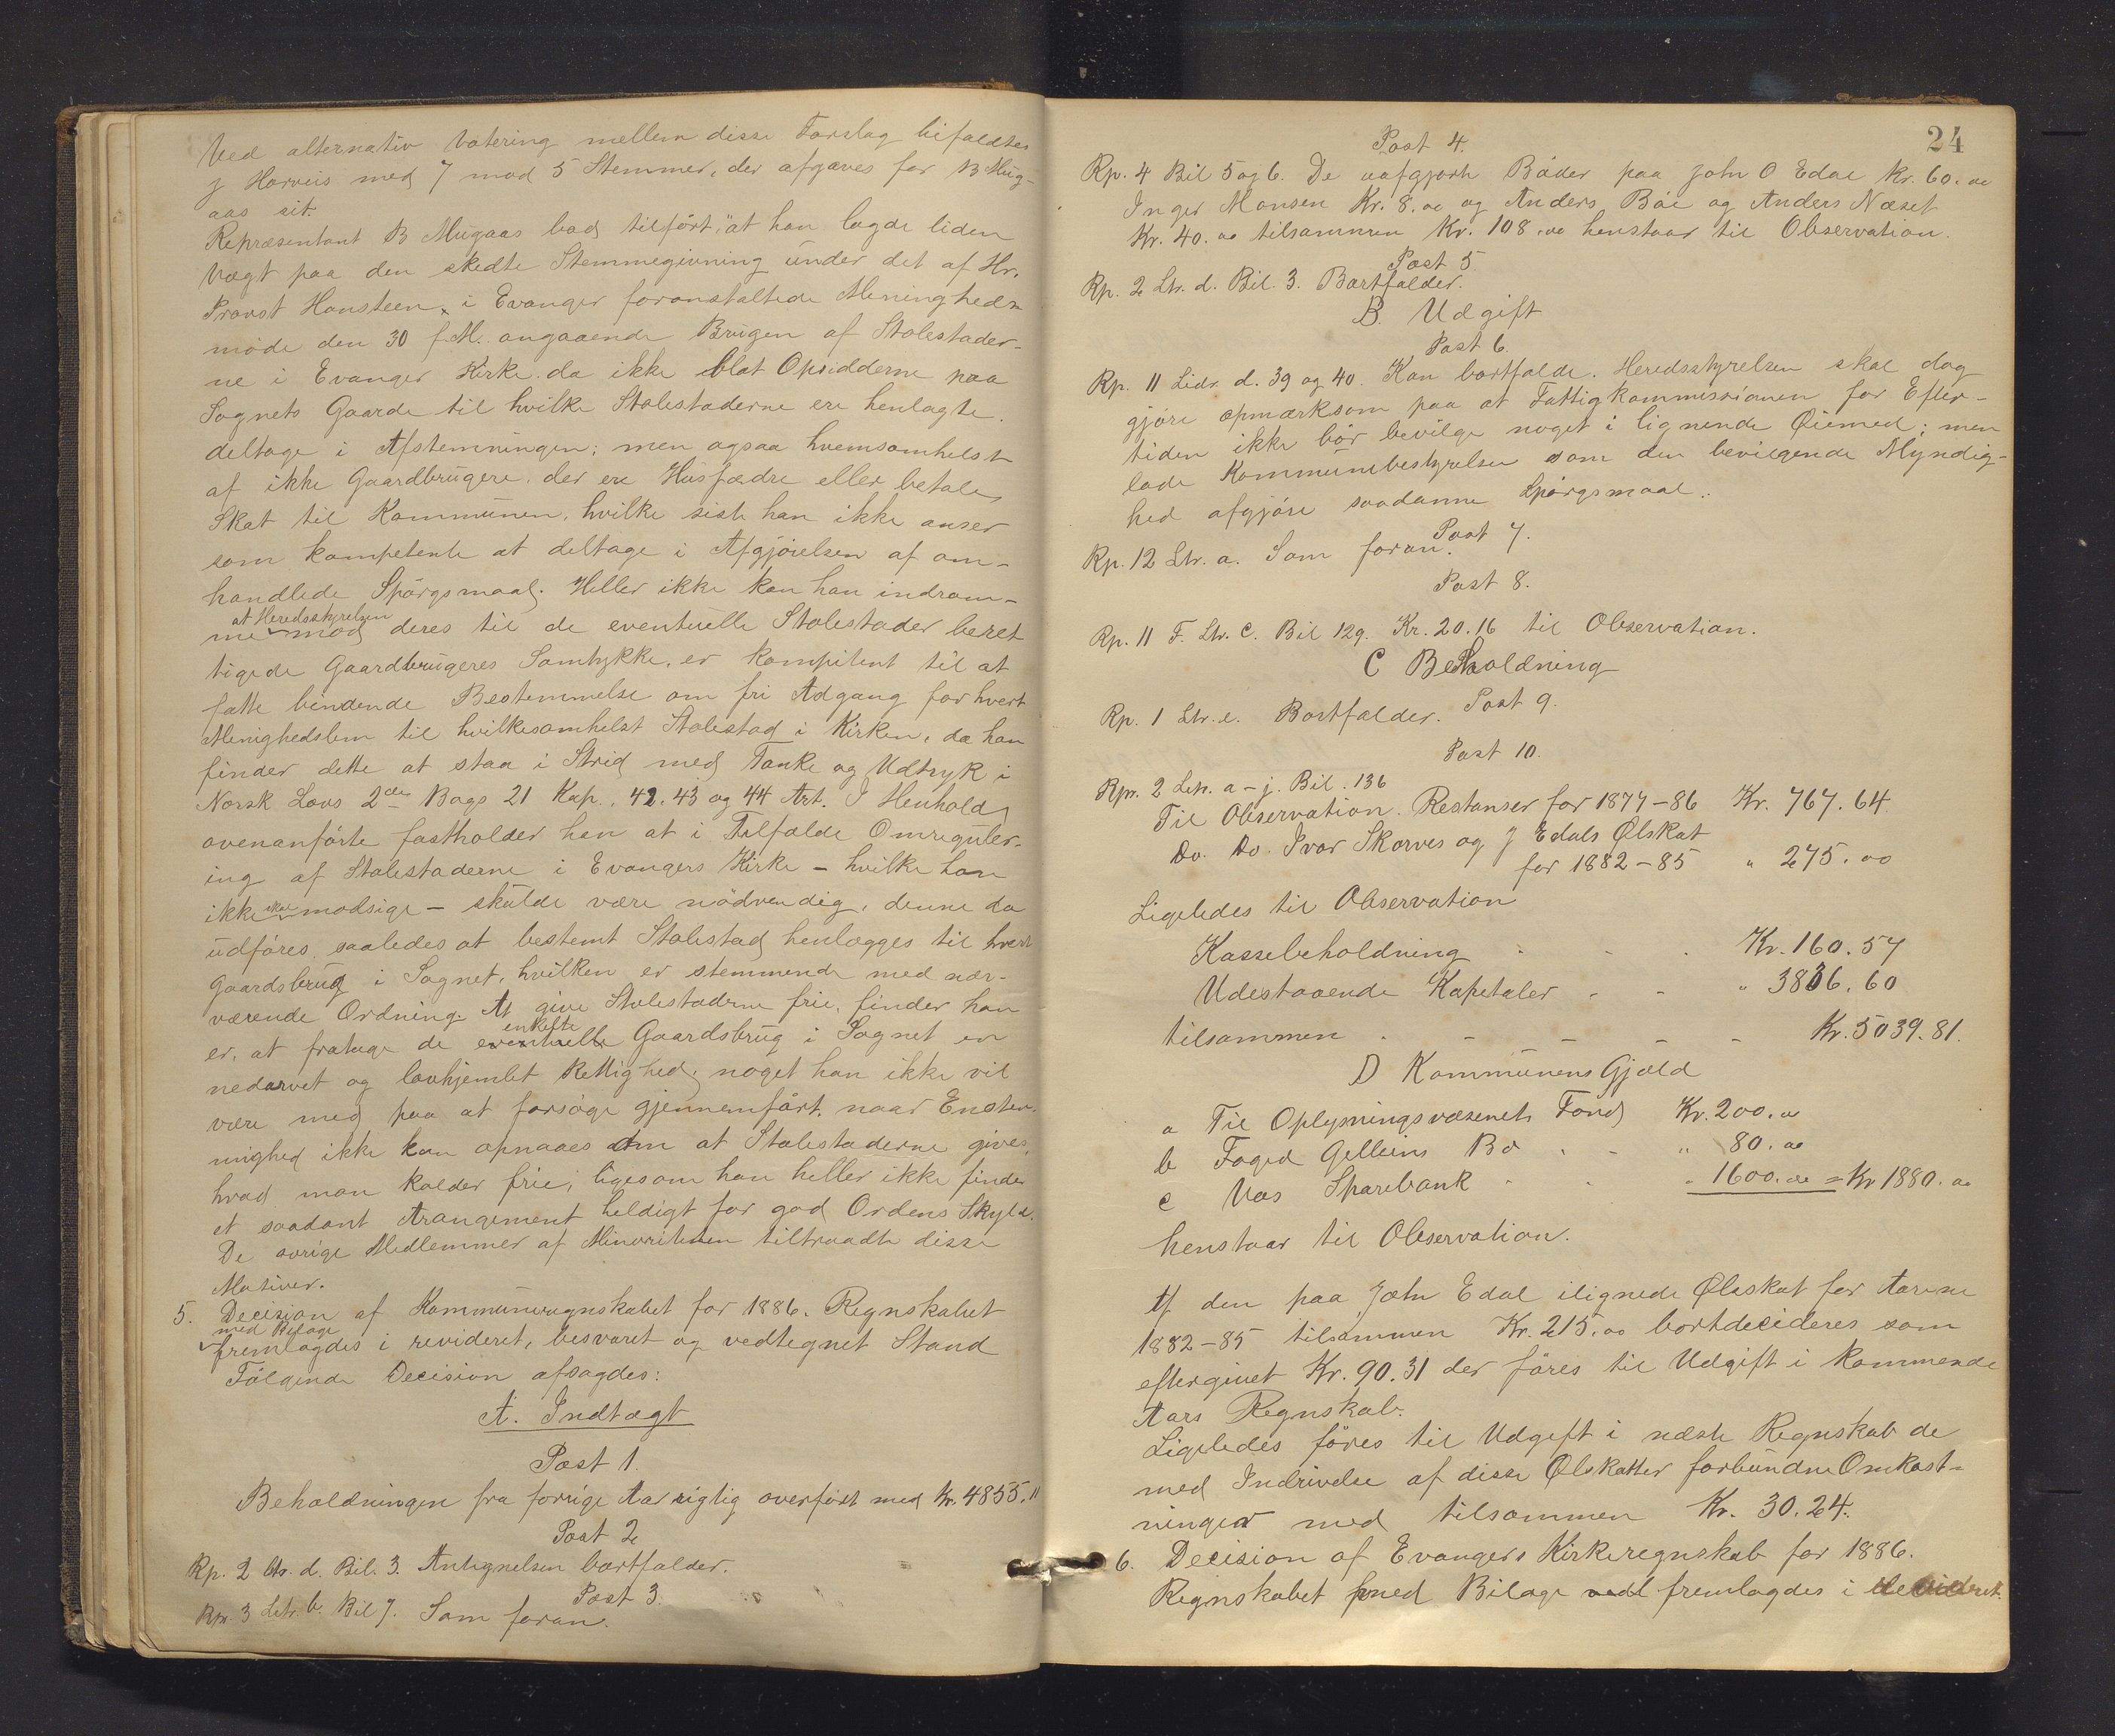 Ved alternativ Votering mellem disse Forslag bifaldtes
J Horveis med 7 mod 5 Stemmer, der afgaves for B Mug-
aas sit.
Repræsentant B Mugaas bad tilført: "at han lagde liden
Vægt paa den skedte Stemmegivning under det af Hr.
Provst Hansteen i Evanger foranstaltede Menigheds-
møde den 30 f.M. angaaende Brugen af Stolestader-
ne i Evanger Kirke da ikke blot Opsidderne paa
Sognets Gaarde til hvilke Stolestaderne ere henlagte.
deltage i Afstemningen; men ogsaa hvemsomhelst
af ikke Gaardbrugere, der ere Husfædre eller betale
Skat til Kommunen, hvilke sidste han ikke anser
som kompetente at deltage i Afgjørelsen af om-
handlede Spørgsmaal. Heller ikke kan han indrøm-
at Heredsstyrelsen
me mod deres til de eventuelle Stolestader beret
tigede Gaardbrugeres Samtykke, er kompitent til at
fatte bindende Bestemmelse om fri Adgang for hvert
Menighedslem til hvilkesomhelst Stolestad i Kirken, da han
finder dette at staa i Strid med Tanke og Udtryk i
Norsk Lovs 2den Bogs 21 Kap., 42, 43 og 44 Art. I Henhold
ovenanførte fastholder han at i Tilfælde Omreguler-
ing af Stolestaderne i Evangers Kirke – hvilke han
ikke skal modsige – skulde være nødvendig, denne da
udføres saaledes at bestemt Stolestad henlægges til hvert
Gaardsbrug i Sognet, hvilken er stemmende med nær-
værende Ordning. At give Stolestaderne frie, finder han
enkelte
er, at fratage de eventuelle Gaardsbrug i Sognet en
nedarvet og lovhjemlet Rettighed, noget han ikke vil
være med paa at forsøge gjennemført, naar Enstem-
mighed ikke kan opnaaes om at Stolestaderne gives,
hvad man kalder frie, ligesom han heller ikke finder
et saadant Arangement heldigt for god Ordens Skyld.
De øvrige Medlemmer af Minoriteten tiltraadte disse
Motiver.
5. Decision af Kommuneregnskabet for 1886. Regnskabet
med Bilage
fremlagdes i revideret, besvaret og vedtegnet Stand
Følgende Decision afsagdes:
A. Indtægt
Post 1.
Beholdningen fra forrige Aar rigtig overført med Kr. 4855.11
Post 2
Rp. 2 Ltr. d. Bil. 3. Antegnelsen bortfalder.
Post 3.
Rp. 3 Letr. b. Bil 7. Som foran.
24
Post 4.
Rp. 4 Bil 5 og 6. De uafgjorte Bøder paa John O Edal Kr. 60.00
Inger Monsen Kr. 8.00 og Anders Bøe og Anders Næset
Kr. 40.00 tilsammen Kr. 108.00 henstaar til Observation.
Post 5
Rp. 2 Ltr. d. Bil. 3. Bortfalder.
B. Udgift
Post 6.
Rp. 11 Lidr. d. 39 og 40. Kan bortfalde. Heredsstyrelsen skal dog
gjøre opmærksom paa at Fattigkommissionen for Efter-
tiden ikke bør bevilge noget i lignende Øiemed; men
lade Kommunebestyrelsen som den bevilgende Myndig-
hed afgjøre saadanne Spørgsmaal.
Post 7.
Rp. 12 Ltr. a. Som foran.
Post 8.
Rp. 11 F. Ltr. C. Bil 129. Kr. 20.16 til Observation.
C Beholdning
Post 9.
Rp. 1 Ltr. e. Bortfalder.
Post 10.
Rpr. 2 Letr. a – j. Bil. 136
Til Observation. Restanser for 1877–86 Kr. 767.64.
Do. Do. Ivar Skorves og J Edals Ølskat
for 1882–85 " 275.00
Ligeledes til Observation
Kassebeholdning Kr. 160.57
Udestaaende Kapetaler " 3836.60
tilsammen Kr. 5039.81.
D Kommunens Gjæld
a Til Oplysningsvæsenets Fond Kr. 200.00
b Foged Gelleins Bo " 80.00
c Vos Sparebank " 1600.00 = Kr 1880.00
henstaar til Observation.
Af den paa John Edal ilignede Ølskat for Aarene
1882–85 tilsammen Kr. 215.00 bortdecideres som
eftergivet Kr. 90.31 der føres til Udgift i kommende
Aars Regnskab.
Ligeledes føres til Udgift i næste Regnskab de
med Indrivelse af disse Ølskatter forbundne Omkost-
ninger med tilsammen Kr. 30.24.
6. Decision af Evangers Kirkeregnskab for 1886.
Regnskabet med Bilage fremlagdes i